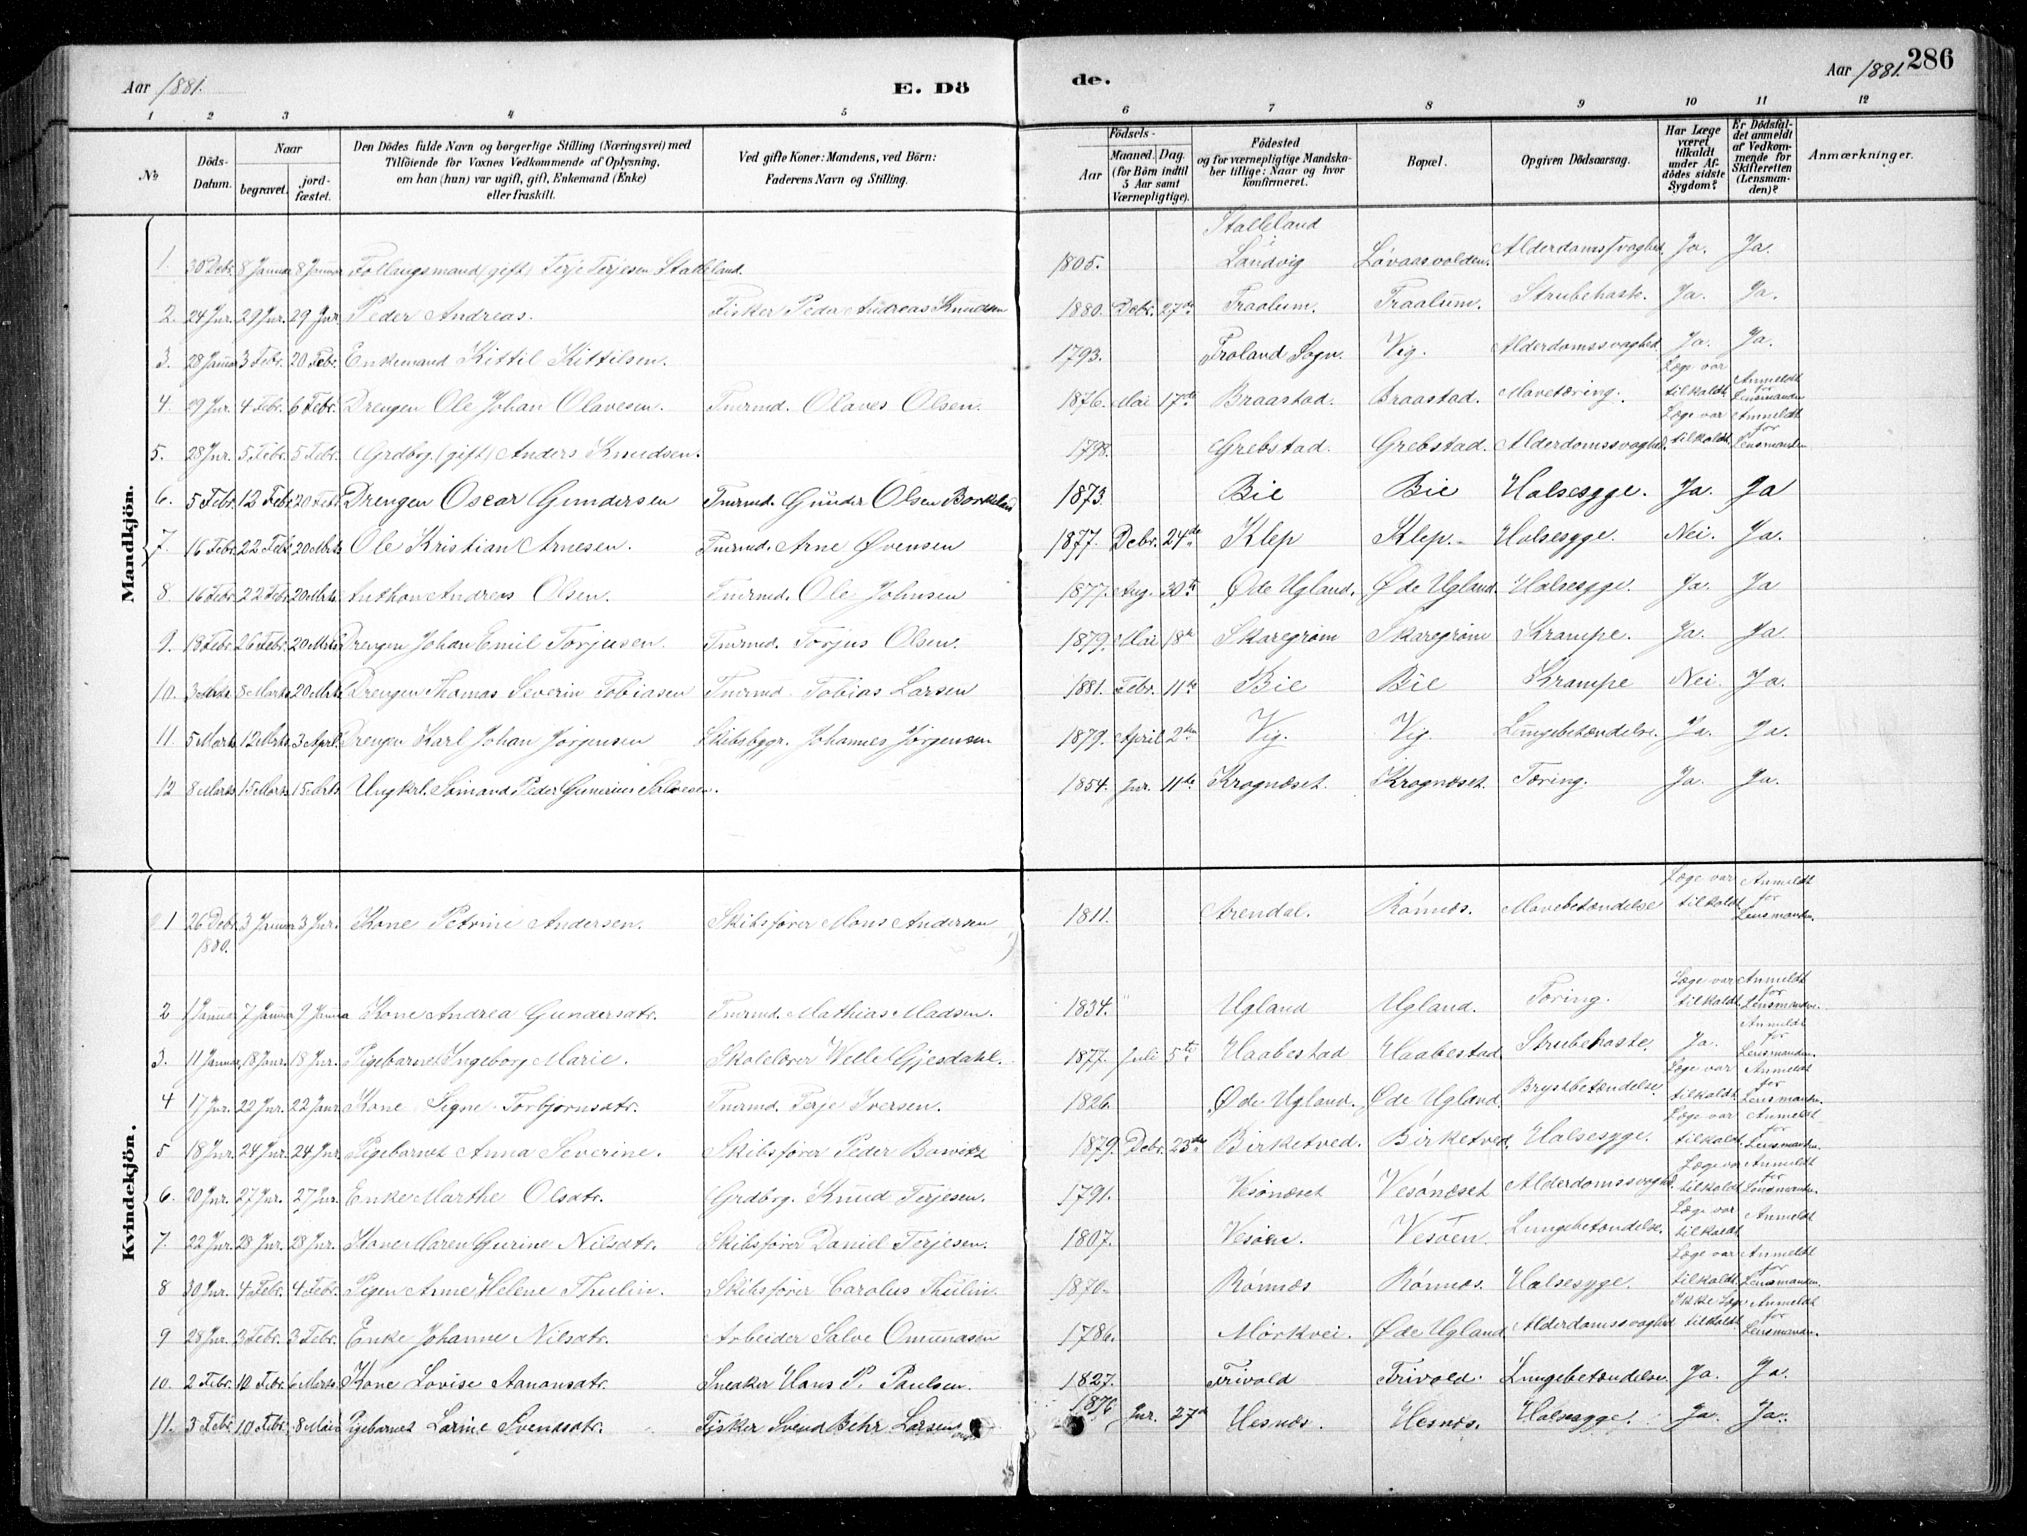 Aar 1881. E. Dö de. Aar 1881. 286
1 2 3 4 5 6 7 8 9 10 11 12
No Döds-Datum. Naar begravet. jordfæstet. Den Dödes fulde Navn og borgerlige Stilling (Næringsvei) med Tilföiende for Voxnes Vedkommende af Oplysning, om han (hun) var ugift, gift, Enkemand (Enke) eller fraskilt. Ved gifte Koner: Mandens, ved Börn: Faderens Navn og Stilling. Födsels- Aar Maaned. Dag. (for Börn indtil 5 Aar samt Værnepligtige). Födested og for værnepligtige Mandskaber tillige: Naar og hvor konfirmeret. Bopæl. Opgiven Dödsaarsag. Har Læge været tilkaldt under Afdödes sidste Sygdom? Er Dödsfaldet anmeldt af Vedkommende for Skifteretten (Lensmanden)? Anmærkninger.
Mandkjön.
1. 30 Debr. 8 Januar 8 Januar Follaugsmand (gift) Terje Terjesen Stalleland. 1805. Stalleland Landvig Løvaasvolden. Alderdomssvaghed. Ja. Ja.
2. 24 Jnr. 29 Jnr. 29 Jnr. Peder Andreas. Fisker Peder Andreas Knudsen 1880. Debr. 27de Traalum. Traalum. Strubehoste. Ja. Ja.
3. 28 Januar 3 Febr. 20 Febr. Enkemand Kittil Kittilsen. 1793. Froland Sogn. Vig. Alderdomssvaghed. Ja. Ja.
4. 29 Jnr. 4 Febr. 6 Febr. Drengen Ole Johan Olavesen. Tmrmd. Olaves Olsen. 1876. Mai 17de Braastad. Braastad. Mavetæring. Læge var tilkaldt. Anmeldt for Lensmanden
5. 28 Jnr. 5 Febr. 5 Febr. Grdbrg. (gift) Anders Knudsen. 1798. Grebstad. Grebstad. Alderdomssvaghed. Læge var tilkaldt. Anmeldt for Lensmanden
6. 5 Febr. 12 Febr. 20 Febr. Drengen Oscar Gundersen Tmrmd. Gunder Olsen Borkeland 1873. Bie Bie Halsesyge. Ja. Ja
7. 16 Febr. 22 Febr. 20 Mrts. Ole Kristian Arnesen. Tmrmd. Arne Øvensen 1877. Debr. 24de Klep Klep. Halsesyge. Nei. Ja.
8. 16 Febr. 22 Febr. 20 Mrts. Anthon Andreas Olsen. Tmrmd. Ole Johnsen 1877. Aug. 30te Øde Ugland. Øde Ugland. Halsesyge. Ja. Ja
9. 18 Febr. 26 Febr. 20 Mrts. Drengen Johan Emil Torjusen. Tmrmd. Torjus Olsen. 1879. Mai 18de Skaregrøm Skaregrøm Krampe. Ja. Ja
10. 3 Mrts. 8 Marts 20 Mrts. Drengen Thomas Severin Tobiasen Tmrmd. Tobias Larsen 1881. Febr. 11te Bie Bie Krampe Nei. Ja.
11. 5 Marts 12 Mrts. 3 April. Drengen Karl Johan Jørgensen Skibsbyggr. Johannes Jørgensen 1879. April 2den Vig. Vig. Lungebetændelse. Ja. Ja.
12 8 Marts 15 Marts 15 Mrts. Ungkrl. Sømand Peder Gunerius Salvesen. 1854. Jnr. 11te Krognæset. Krognæset. Tæring. Ja. Ja.
Kvindekjön.
1 26 Debr. 1880. 3 Januar 3 Jnr. Kone Petrine Andersen. Skibsfører Mons Andersen 1811. Arendal. Rønnæs. Mavebetændelse Læge var tilkaldt. Anmeldt for Lensmanden.
2 1 Januar 7 Januar 9 Januar Kone Andrea Gundersdtr. Tmrmd. Mathias Madsen. 1834. Ugland Ugland. Tæring. Læge var tilkaldt. Anmeldt for Lensmanden.
3. 11 Januar. 18 Jnr. 18 Jnr. Pigebarnet Ingeborg Marie. Skolelærer Gjesdahl. 1877. Juli 5te Haabestad Haabestad. Strubehoste. Ja. Anmeldt for Lensmanden.
4 17 Jnr. 22 Jnr. 22 Janr. Kone Signe Torbjørnsdtr. Tmrmd. Terje Iversen. 1826. Øde Ugland. Øde Ugland. Brystbetændelse. Læge var tilkaldt. Anmeldt for Lensmanden.
5 18 Jnr. 24 Jnr. 24 Jnr. Pigebarnet Anna Severine. Skibsfører Peder 1879. Debr. 23de Birketved. Birketved. Halsesyge. Læge var tilkaldt. Anmeldt for Lensmanden.
6. 20 Jnr. 27 Jnr. 27 Jnr. Enke Marthe Olsdtr. Grdbrg. Knud Terjesen. 1791. Vesønæset Vesønæset Alderdomssvaghd. Læge var tilkaldt. Anmeldt for Lensmanden.
7. 22 Jnr. 28 Jnr. 28 Jnr. Kone Maren Gurine Nilsdtr. Skibsfører Daniel Terjesen. 1807. Vesøen. Vesøen. Lungebetændelse. Læge var tilkaldt. Anmeldt for
8 30 Jnr. 4 Febr. 4 Febr. Pigen Anne Helene Thulin. Skibsfører Carolus Thulin. 1870. Rønnæs Rønnæs. Halsesyge. Læge var tilkaldt. Anmeldt for Lensmanden.
9 28 Jnr. 3 Febr. 3 Febr. Enke Johanne Nilsdtr. Arbeider Salve Omundsen 1786. Mørkvei. Øde Ugland. Alderdomssvaghed Ikke Læge tilkaldt. Anmeldt for Lensmanden.
10. 2 Febr. 10 Febr. 6 Marts Kone Lovise Aanonsdtr. Snedker Hans P. Paulsen. 1827. Trivold Trivold. Lungebetændelse. Ja. Ja.
11. 3 Febr. 10 Febr. 8 Mai Pigebarnet Larine Svendsdtr. Fisker Svend Behr Larsen 1876 Jnr. 27de Hesnæs. Hesnæs. Halsesyge. Ja. Ja.